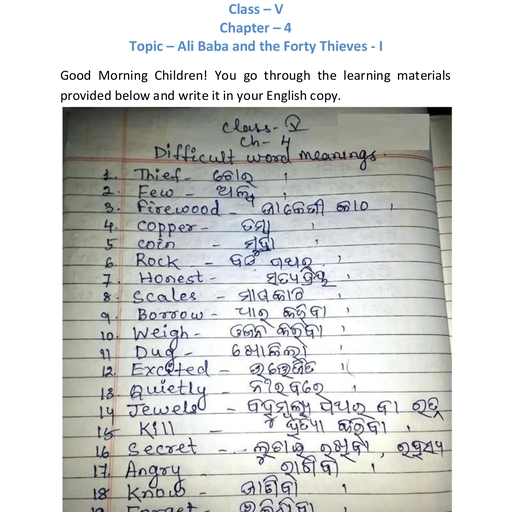 Class – V
Chapter – 4
Topic – Ali Baba and the Forty Thieves - I
Good Morning Children! You go through the learning materials
provided below and write it in your English copy.
Class - V
Ch - 4
Difficult word meanings.
1. Thief - ଚୋର ।
2. Few - ଅଳ୍ପ ।
3. Firewood - ଜାଳେଣୀ କାଠ ।
4. Copper - ତମ୍ବା ।
5 coin - ମୁଦ୍ରା ।
6. Rock - ବଡ ପଥର ।
7. Honest - ସତ୍ୟପ୍ରିୟ ।
8. Scales - ମାପକାଠି ।
9. Borrow - ଧାର କରିବା ।
10. Weigh - ଓଜନ କରିବା ।
11 Dug - ଖୋଳିଲା ।
12. Excited - ଉତ୍ତେଜିତ ।
13. Quietly - ନୀରବରେ ।
14 Jewels - ବହୁମୂଲ୍ୟ ପଥର ବା ରତ୍ନ
15 Kill - ହତ୍ୟା କରିବା ।
16 Secret - ଲୁଚାଇ ରଖିବା, ରହସ୍ୟ
17. Angry - ରାଗିବା ।
18 Know - ଜାଣିବା ।
19 Forget -